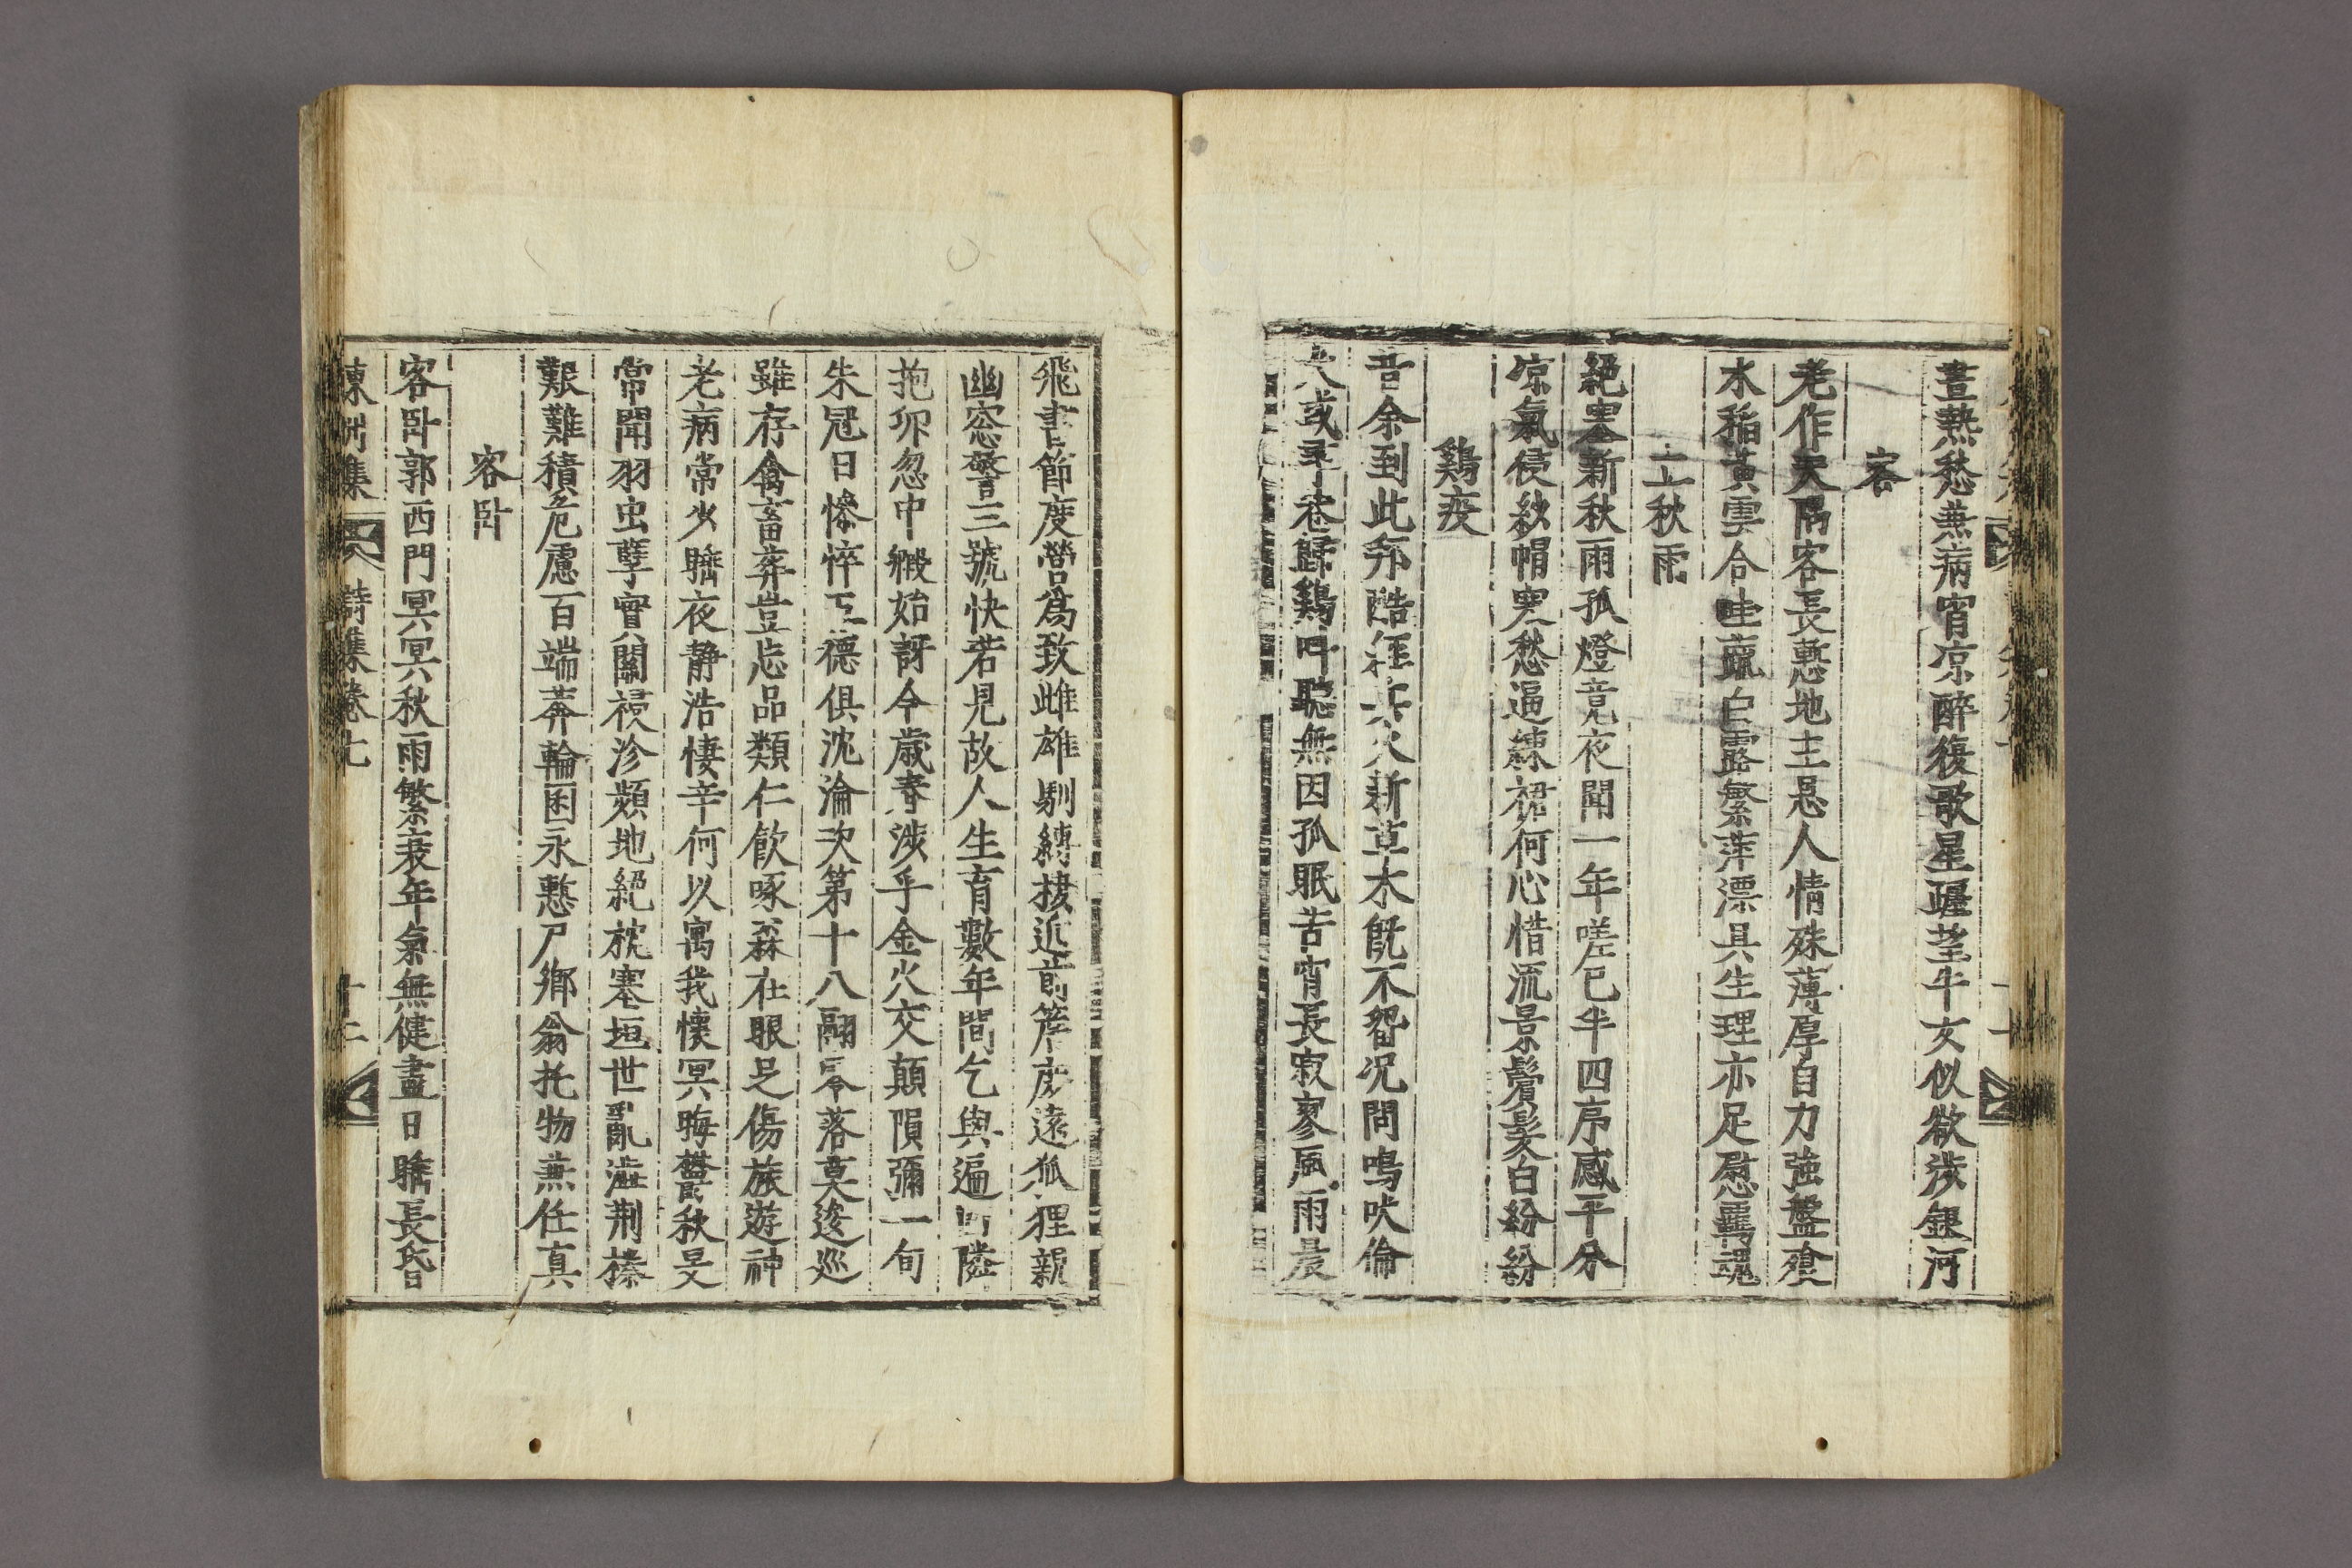 晝熱愁兼病宵凉醉復歌星躔莖牛女似欲涉銀河
客
老作天隅客長慙地主恩人情殊薄厚自力強盤飱
水稻黃雲合畦蔬白露繁萍漂具生理亦足慰羈魂
秋雨
絕塞新秋雨孤燈竟夜聞一年嗟已半四序感平分
凉氣侵紗帽寒愁逼練裙何心惜流景鬢髮白紛紛
鷄疫
昔余到此邦酷經兵火新草木旣不留况問鳴吠倫
或畢巷歸鷄叫聽無因孤眠苦宵長寂寥風雨晨
飛書節度營爲致雌雄馴縛棲近前簷庶遠狐狸親
幽窓警三號快若見故人生育數年間乞與遍隣
抱卵忽中㲉始訝今歲春涉乎金火交顚隕彌一旬
朱冠日慘悴五德俱沈淪次第十八翮零落莫逡巡
雖存禽畜葬豈忘品類仁飮啄森在眼足傷旅遊神
老病常少睡夜靜浩悽辛何以寓我懷冥晦鬱秋旻
常聞羽虫孽實關祲沴頻地絕枕塞垣世亂滋荆榛
艱難積危慮百端莽輪囷永慙尸鄕翁托物兼任眞
客卧
客卧郭西門冥冥秋雨繁衰年氣無健盡日睡長昏
東州集 詩集卷七 十二